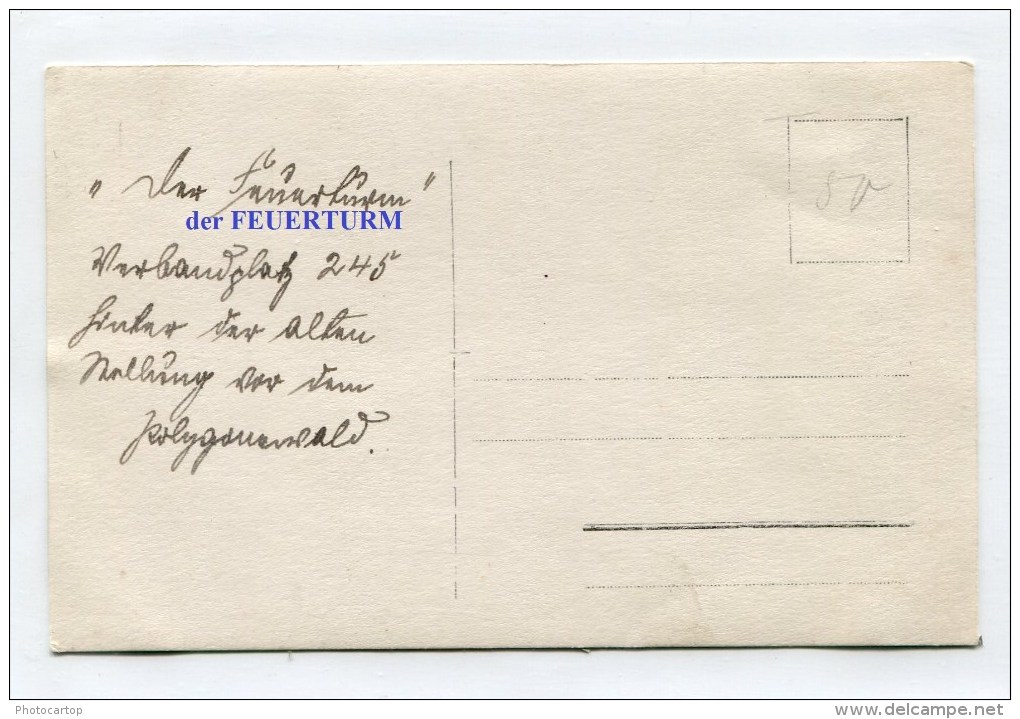 „ Der Feuerturm "
der FEUERTURM
Verbandplatz 245
hinter der alten
Stellung vor dem
Polygonewald.
50
Photocartop
www.delcampe.net